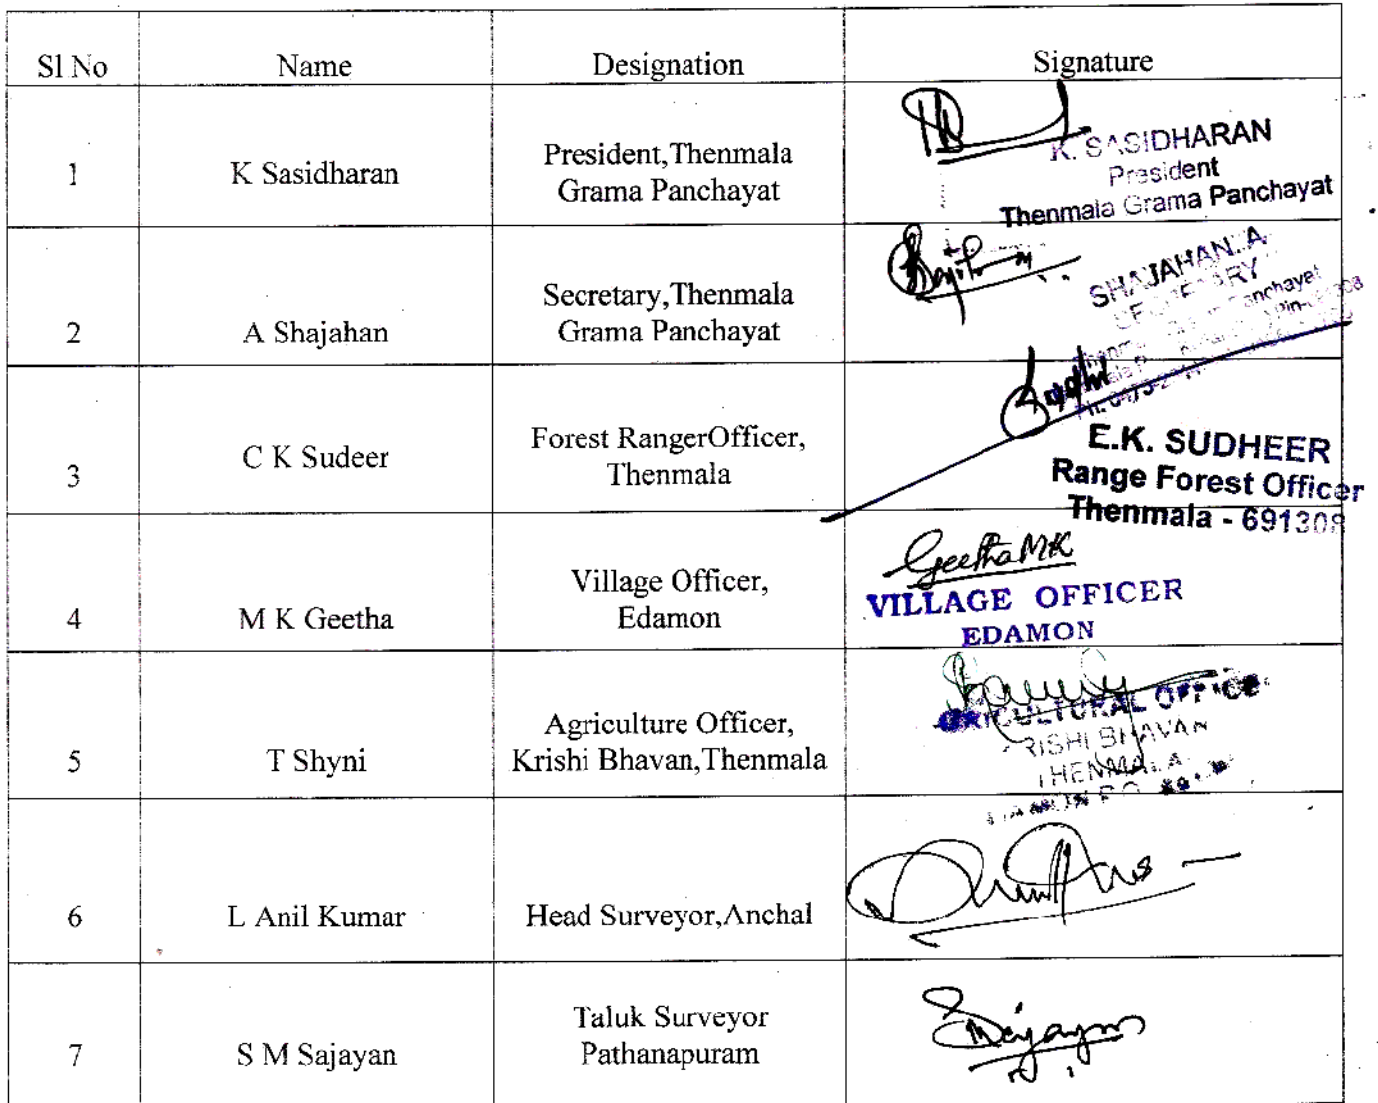 Sl No Name Designation Signature
1 K Sasidharan President,Thenmala
Grama Panchayat
K. SASIDHARAN
President
Thenmala Grama Panchayat
2 A Shajahan Secretary,Thenmala
Grama Panchayat
SHAJAHAN.A
SECRETARY
3 C K Sudeer Forest RangerOfficer,
Thenmala
E.K. SUDHEER
Range Forest Officer
Thenmala - 691308
4 M K Geetha Village Officer,
Edamon
Geetha MK
VILLAGE OFFICER
EDAMON
5 T Shyni Agriculture Officer,
Krishi Bhavan,Thenmala
AGRICULTURAL OFFICE
KRISHI BHAVAN
THENMALA
6 L Anil Kumar Head Surveyor,Anchal
7 S M Sajayan Taluk Surveyor
Pathanapuram